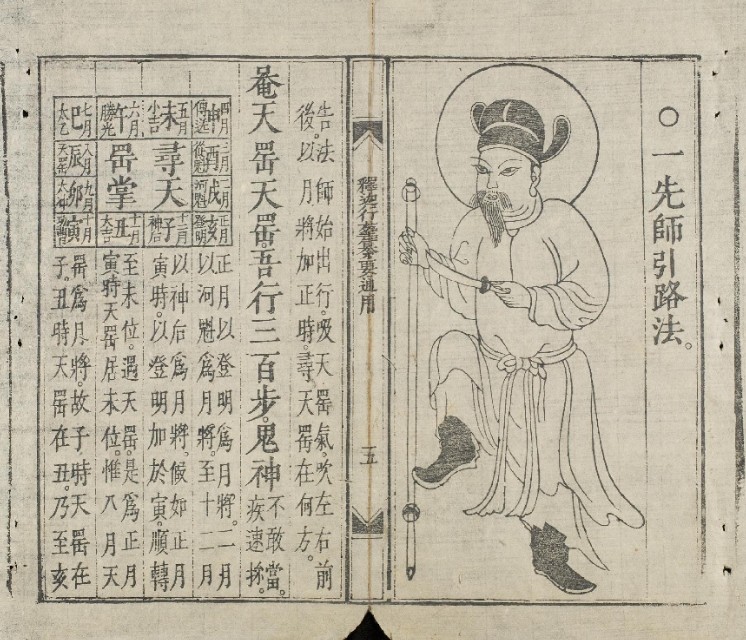 ○一先師引路法。
釋迦行要通用
一五
告法師始出行。吸天罡氣。吹左右前
後。以月將加正時。尋天罡在何方。
菴天罡天罡。吾行三百步。鬼神不敢當。疾速
四月申傳送
三月酉從魁
二月戌河魁
正月亥登明
五月未小吉
尋天
十二月子神后
六月午勝光
罡掌
十一月丑大吉
七月巳太乙
八月辰天罡
九月卯太冲
十月寅
正月以登明爲月將。二月
以河魁爲月將。至十二月
以神后爲月將。假如正月
寅時。以登明加於寅。順轉
至未位。遇天罡。是爲正月
寅時天罡居未位。惟八月天
罡爲月將。故子時天罡在
子。丑時天罡在丑。乃至亥